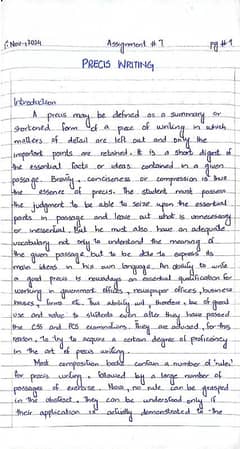 Nov-2024 Assignment # 7 pg # 1
PRECIS WRITING
Introduction
A precis may be defined as a summary or
shortened form of a piece of writing in which
matters of detail are left out and only the
important points are retained. It is a short digest of
the essential facts or ideas contained in a given
passage. Brevity, conciseness or compression is thus
the essence of precis. The student must possess
the judgment to be able to seize upon the essential
points in passage and leave out what is unnecessary
or inessential. But he must also have an adequate
vocabulary not only to understand the meaning of
the given passage, but to be able to express its
main ideas in his own language. An ability to write
a good precis is nowadays an essential qualification for
working in government offices, newspaper offices, business
houses, firms etc. This ability will, therefore, be of great
use and value to students even after they have passed
the CSS and PCS examinations. They are advised, for this
reason, to try to acquire a certain degree of proficiency
in the art of precis writing.
Most composition books contain a number of 'rules'
for precis writing, followed by a large number of
passages of exercise. Now, no rule can be grasped
in the abstract. They can be understood only if
their application is actually demonstrated to the